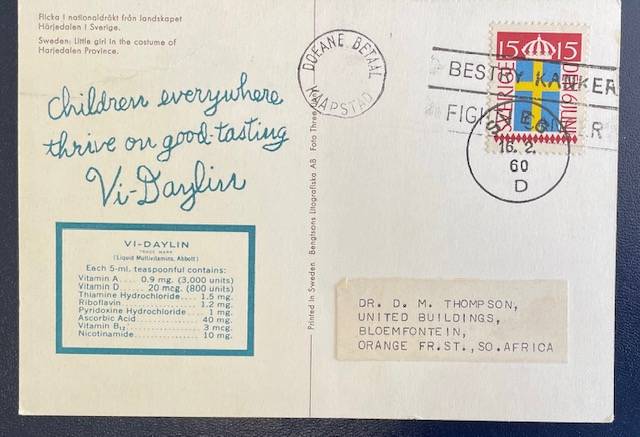 Flicka i nationaldräkt från landskapet
Härjedalen i Sverige.
Sweden: Little girl in the costume of
Harjedalen Province.
Children everywhere
thrive on good-tasting
Vi-Daylin
VI-DAYLIN
TRADE MARK
(Liquid Multivitamins, Abbott)
Each 5-ml. teaspoonful contains:
Vitamin A.... 0.9 mg. (3,000 units)
Vitamin D..... 20 mcg. (800 units)
Thiamine Hydrochloride.... 1.5 mg.
Riboflavin.... 1.2 mg.
Pyridoxine Hydrochloride.... 1 mg.
Ascorbic Acid.... 40 mg.
Vitamin B12.... 3 mcg.
Nicotinamide.... 10 mg.
Printed in Sweden Bengtsons Litografiska AB Foto Three
DOEANE BETAAL
KAAPSTAD
15 15
SVERIGE
BESTRY KANKER
16. 2.
60
D
DR. D. M. THOMPSON,
UNITED BUILDINGS,
BLOEMFONTEIN,
ORANGE FR.ST.,SO.AFRICA